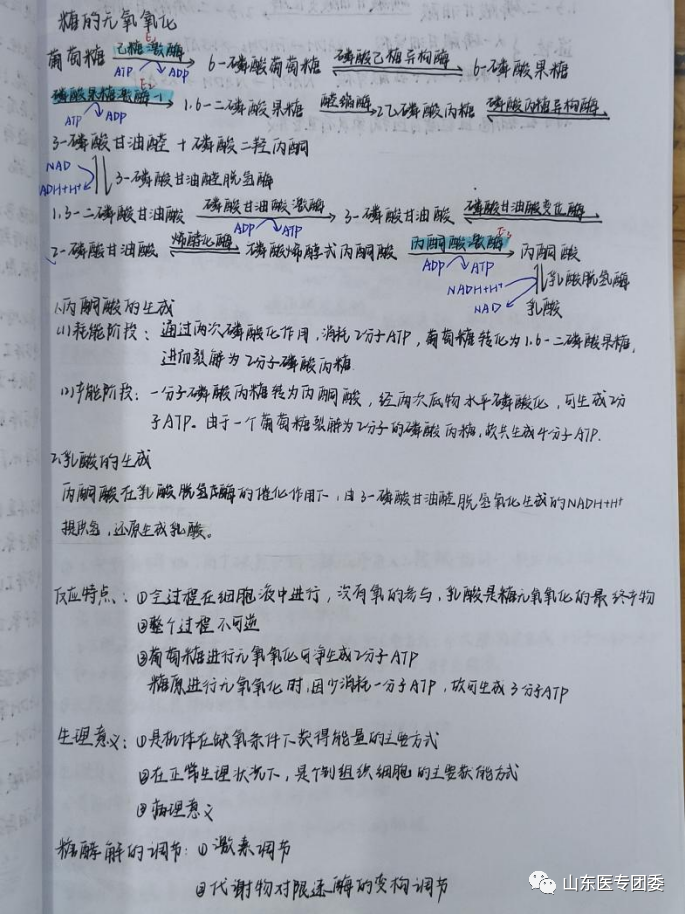 糖的无氧氧化
葡萄糖 己糖激酶 E₁ ATP ADP 6-磷酸葡萄糖 磷酸己糖异构酶 6-磷酸果糖
磷酸果糖激酶-1 E₂ ATP ADP 1.6-二磷酸果糖 醛缩酶 2乙磷酸丙糖 磷酸丙糖异构酶
3-磷酸甘油醛 + 磷酸二羟丙酮
NAD ADH+H⁺ 3-磷酸甘油醛脱氢酶
1.3-二磷酸甘油酸 磷酸甘油酸激酶 ADP ATP 3-磷酸甘油酸 磷酸甘油酸变位酶
2-磷酸甘油酸 烯醇化酶 磷酸烯醇式丙酮酸 丙酮酸激酶 E₃ ADP ATP 丙酮酸
NADH+H⁺ NAD 乳酸脱氢酶
乳酸
1.丙酮酸的生成
(1)耗能阶段：通过两次磷酸化作用，消耗2分子ATP，葡萄糖转化为1.6-二磷酸果糖，
进而裂解为2分子磷酸丙糖
(2)产能阶段：一分子磷酸丙糖转为丙酮酸，经两次底物水平磷酸化，可生成2分
子ATP。由于一个葡萄糖裂解为2分子的磷酸丙糖，故共生成4分子ATP.
2.乳酸的生成
丙酮酸在乳酸脱氢酶的催化作用下，由3-磷酸甘油醛脱氢氧化生成的NADH+H⁺
提供氢，还原生成乳酸。
反应特点：①全过程在细胞液中进行，没有氧的参与，乳酸是糖无氧氧化的最终产物
②整个过程不可逆
③葡萄糖进行无氧氧化可净生成2分子ATP
糖原进行无氧氧化时，因少消耗一分子ATP，故可生成3分子ATP
生理意义：①是机体在缺氧条件下获得能量的主要方式
②在正常生理状况下，是个别组织细胞的主要获能方式
③病理意义
糖酵解的调节：①激素调节
②代谢物对限速酶的变构调节
山东医专团委